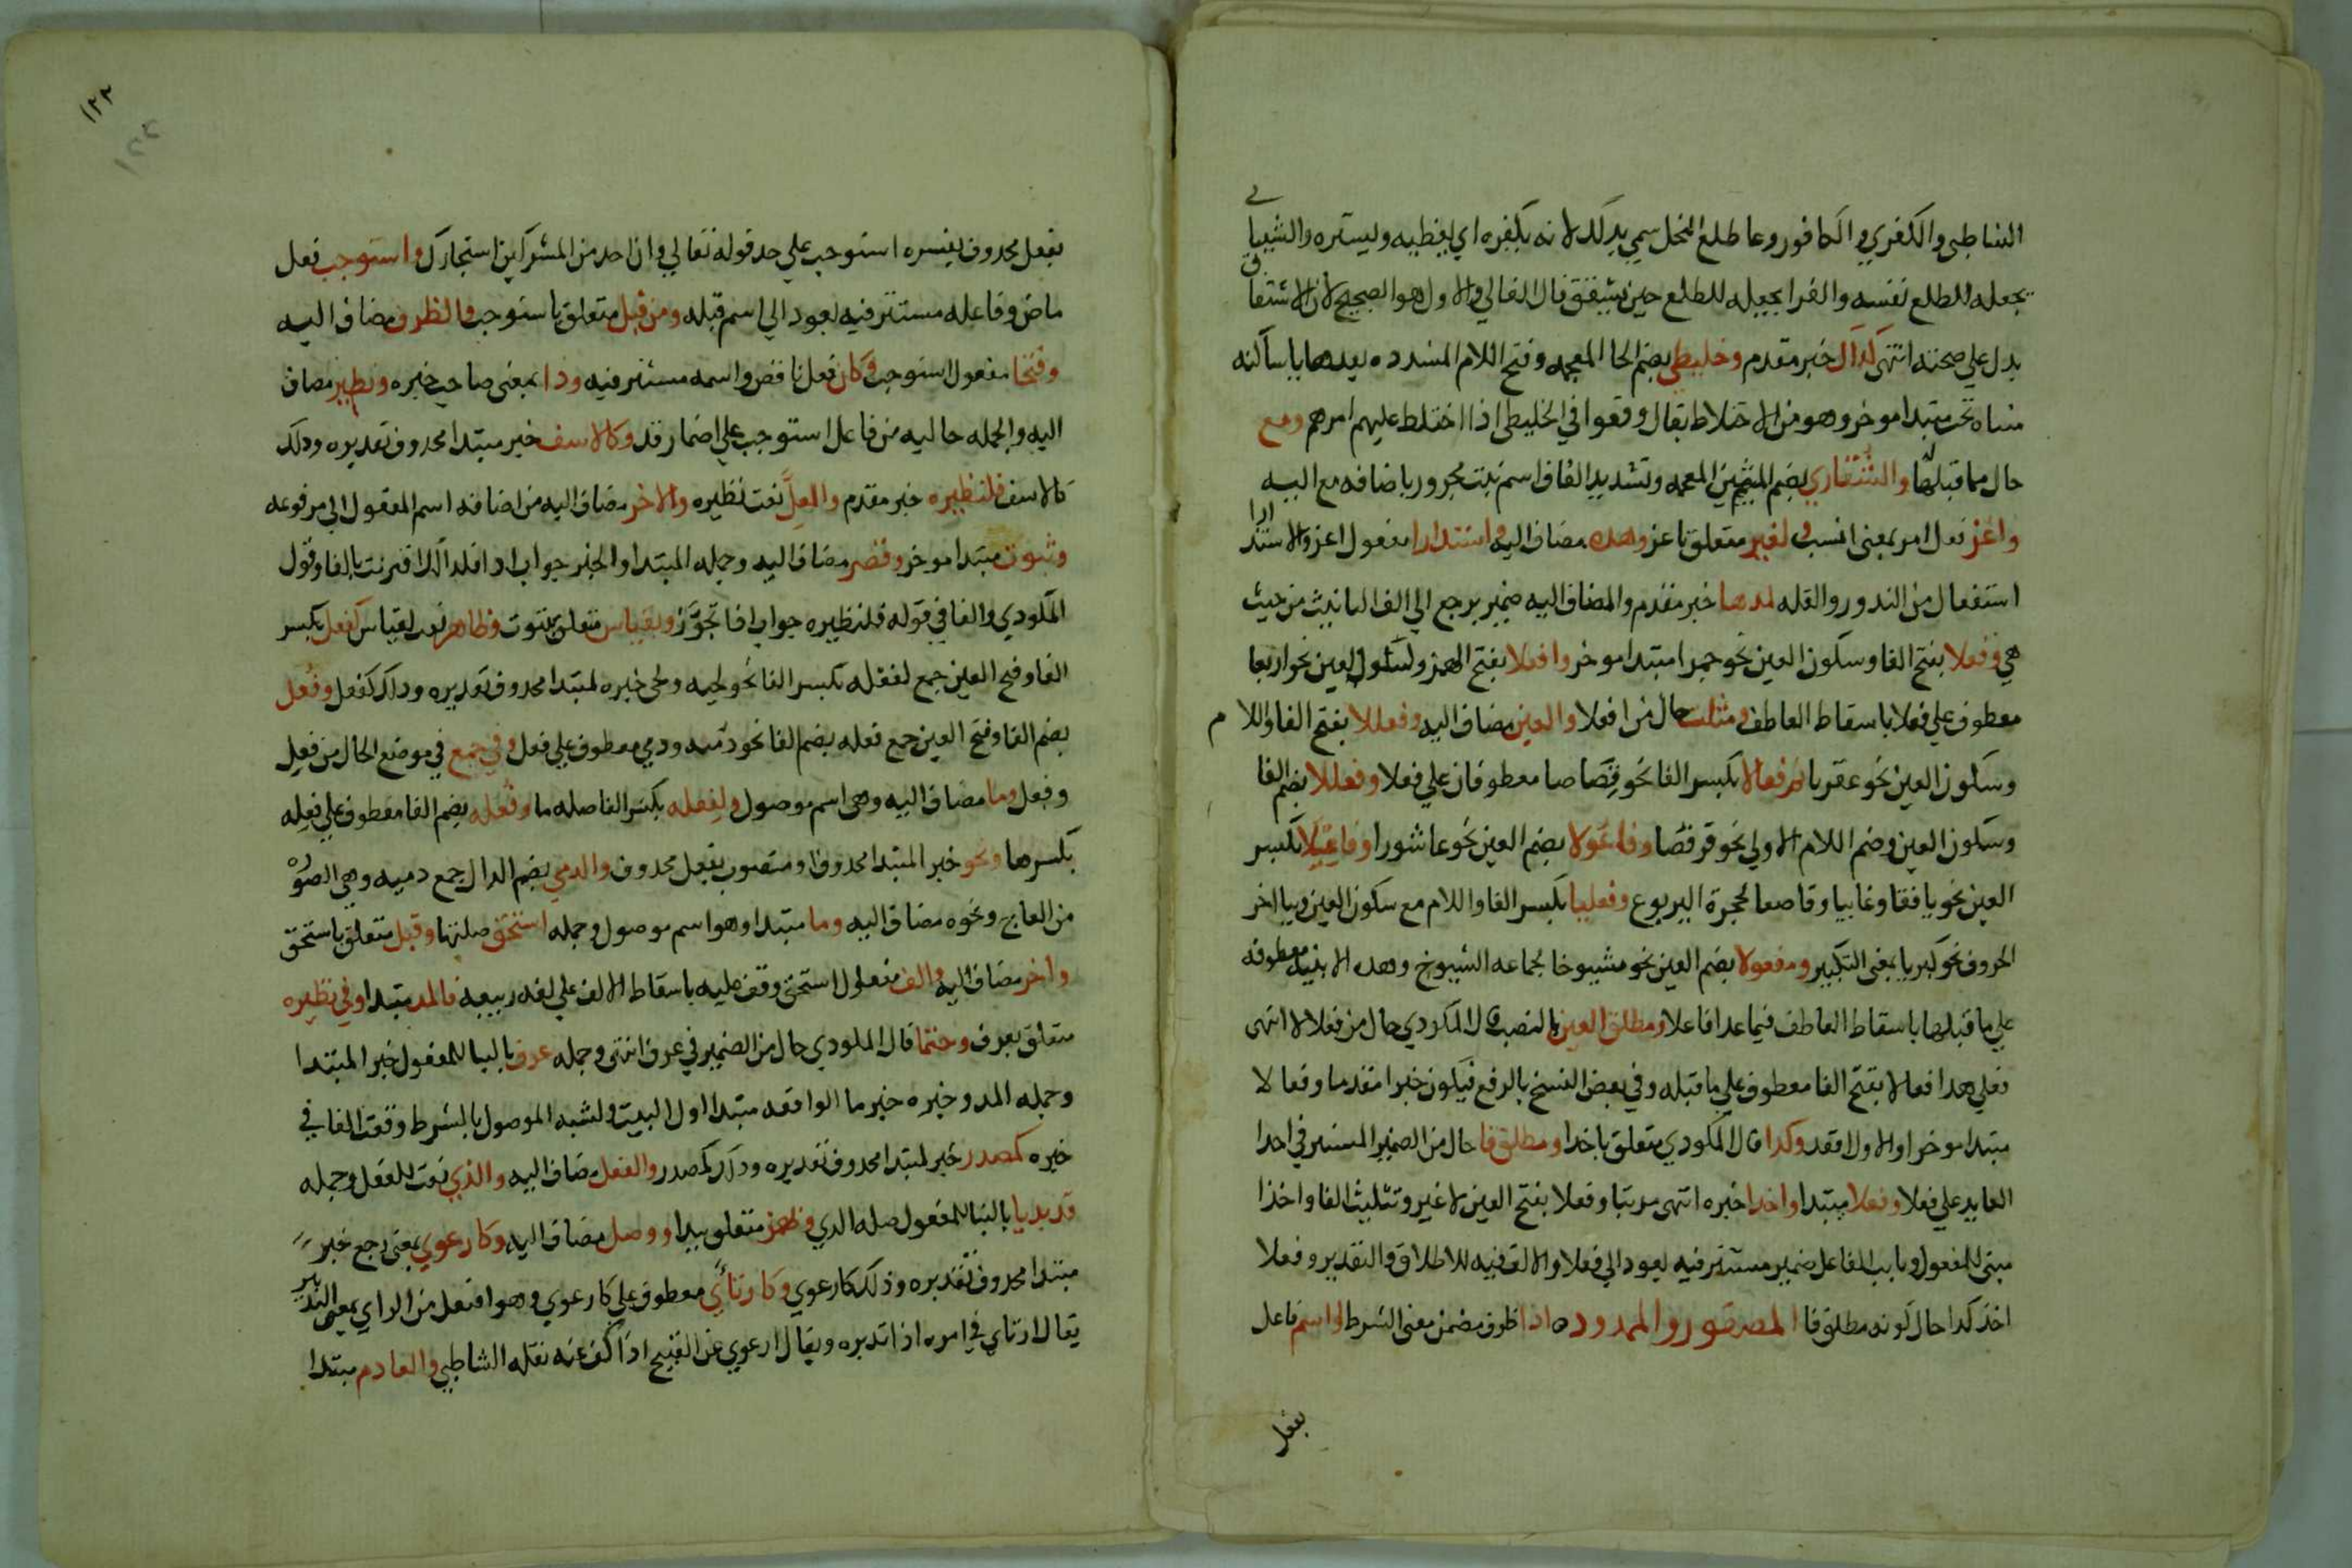 الشاطبي والكفري والكافور وعا طلع النخل سمي بذلك لانه يكفره اي يغطيه ويستره والشيباني
يجعله للطلع نفسه والفرا يجعله للطلع حين ينشق قال القالي والاول هو الصحيح لان الاشتقاق
يدل على صحته انتهى كذاك خبر مقدم وخليطى بضم الخا المعجمه وفتح اللام المشدده بعدها يا ساكنه
مثناه تحت مبتدا موخر وهو من الاختلاط يقال وقعوا في الخليطى اذا اختلط عليهم امرهم ومع
حال مما قبلها والشقارى بضم الشين المعجمه وتشديد القاف اسم نبت مجرور باضافه مع اليه
واعز فعل امر بمعنى انسب ولغير متعلق باعز وهذه مضاف اليه واستندارا مفعول اعز والاستندارا
استفعال من الندور والقله لمدها خبر مقدم والمضاف اليه ضمير يرجع الى الف التانيث من حيث
هي وفعلا بفتح الفا وسكون العين نحو حمرا مبتدا موخر وافعلا بفتح الهمز وسكون العين نحو اربعا
معطوف على فعلا باسقاط العاطف ومثلث حال من افعلا والعين مضاف اليه وفعللا بفتح الفا واللام
وسكون العين نحو عقربا ثم فعالا بكسر الفا نحو قصاصا معطوفان على فعلا وفعللا بضم الفا
وسكون العين وضم اللام الاولى نحو قرفصا وفاعولا بضم العين نحو عاشورا وفاعلا بكسر
العين نحو يافقا وغابيا وقاصعا لحجرة اليربوع وفعليا بكسر الفا واللام مع سكون العين وبيا اخر
الحروف نحو كبريا بمعنى التكبير ومفعولا بضم العين نحو مشيوخا لجماعه الشيوخ وهذه الابنيه معطوفه
على ما قبلها باسقاط العاطف فيما عدا فاعلا ومطلق العين بالنصب قال المكودي حال من فعالا انتهى
فعلى هذا فعالا بفتح الفا معطوف على ما قبله وفي بعض النسخ بالرفع فيكون خبرا مقدما وفعالا
مبتدا موخرا والاول اقعد وكذا قال المكودي متعلق باخذا ومطلق فا حال من الضمير المستتر في اخذا
العايد على فعلا وفعلا مبتدا واخذا خبره انتهى مرتبا وفعلا بفتح العين لا غير وتثليث الفا واخذا
مبني للمفعول ونايب الفاعل ضمير مستتر فيه يعود الى فعلا والالف فيه للاطلاق والتقدير وفعلا
اخذ كذا حال كونه مطلق فا المقصور والممدوده اذا ظرف مضمن معنى الشرط واسم فاعل
بفعل
١٢٢
١٢٢
بفعل محذوف يفسره استوجب على حد قوله تعالى وان احد من المشركين استجارك واستوجب فعل
ماض وفاعله مستتر فيه يعود الى اسم قبله ومن قبل متعلق باستوجب والظرف مضاف اليه
وفتحا مفعول استوجب وكان فعل ناقص واسمه مستتر فيه وذا بمعنى صاحب خبره ونظير مضاف
اليه والجمله حاليه من فاعل استوجب على اضمار قد وكالاسف خبر مبتدا محذوف تقديره وذلك
كالاسف فلنظيره خبر مقدم والمعل نعت نظيره والاخر مضاف اليه من اضافه اسم المفعول الى مرفوعه
وثبوت مبتدا موخر وقصر مضاف اليه وجمله المبتدا والخبر جواب اذا فلذلك اقترنت بالفا وقول
المكودي والفا في قوله فلنظيره جواب اذا تجوز وبقياس متعلق بثبوت وظاهر نعت لقياس كفعل بكسر
الفا وفتح العين جمع لفعله بكسر الفا نحو لحيه ولحى خبره لمبتدا محذوف تقديره وذلك كفعل وفعل
بضم الفا وفتح العين جمع فعله بضم الفا نحو دميه ودمى معطوف على فعل وفي جمع في موضع الحال من فعل
وفعل وما مضاف اليه وهي اسم موصول ولفعله بكسر الفا صله ما وفعله بضم الفا معطوف على فعله
بكسرها ونحو خبر المبتدا محذوف او منصوب بفعل محذوف والدمى بضم الدال جمع دميه وهي الصوره
من العاج ونحوه مضاف اليه وما مبتدا وهو اسم موصول وجمله استحق صلتها وقبل متعلق باستحق
واخر مضاف اليه والف مفعول استحق وقف عليه باسقاط الالف على لغه ربيعه فالمد مبتدا وفي نظيره
متعلق بعرف وحتما قال المكودي حال من الضمير في عرف انتهى وجمله عرف بالبنا للمفعول خبر المبتدا
وجمله المد وخبره خبر ما الواقعه مبتدا اول البيت ولشبه الموصول بالشرط وقعت الفا في
خبره كمصدر خبر لمبتدا محذوف تقديره وذلك كمصدر والفعل مضاف اليه والذي نعت للفعل وجمله
قد بديا بالبنا للمفعول صله الذي وبهمز متعلق ببدا ووصل مضاف اليه وكارعوى بمعنى رجع خبر
مبتدا محذوف تقديره وذلك كارعوى وكارتأى معطوف على كارعوى وهو افتعل من الراي بمعنى التدبير
يقال ارتاى في امره اذا تدبره ويقال ارعوى عن القبيح اذا كف عنه نقله الشاطبي والعادم مبتدا